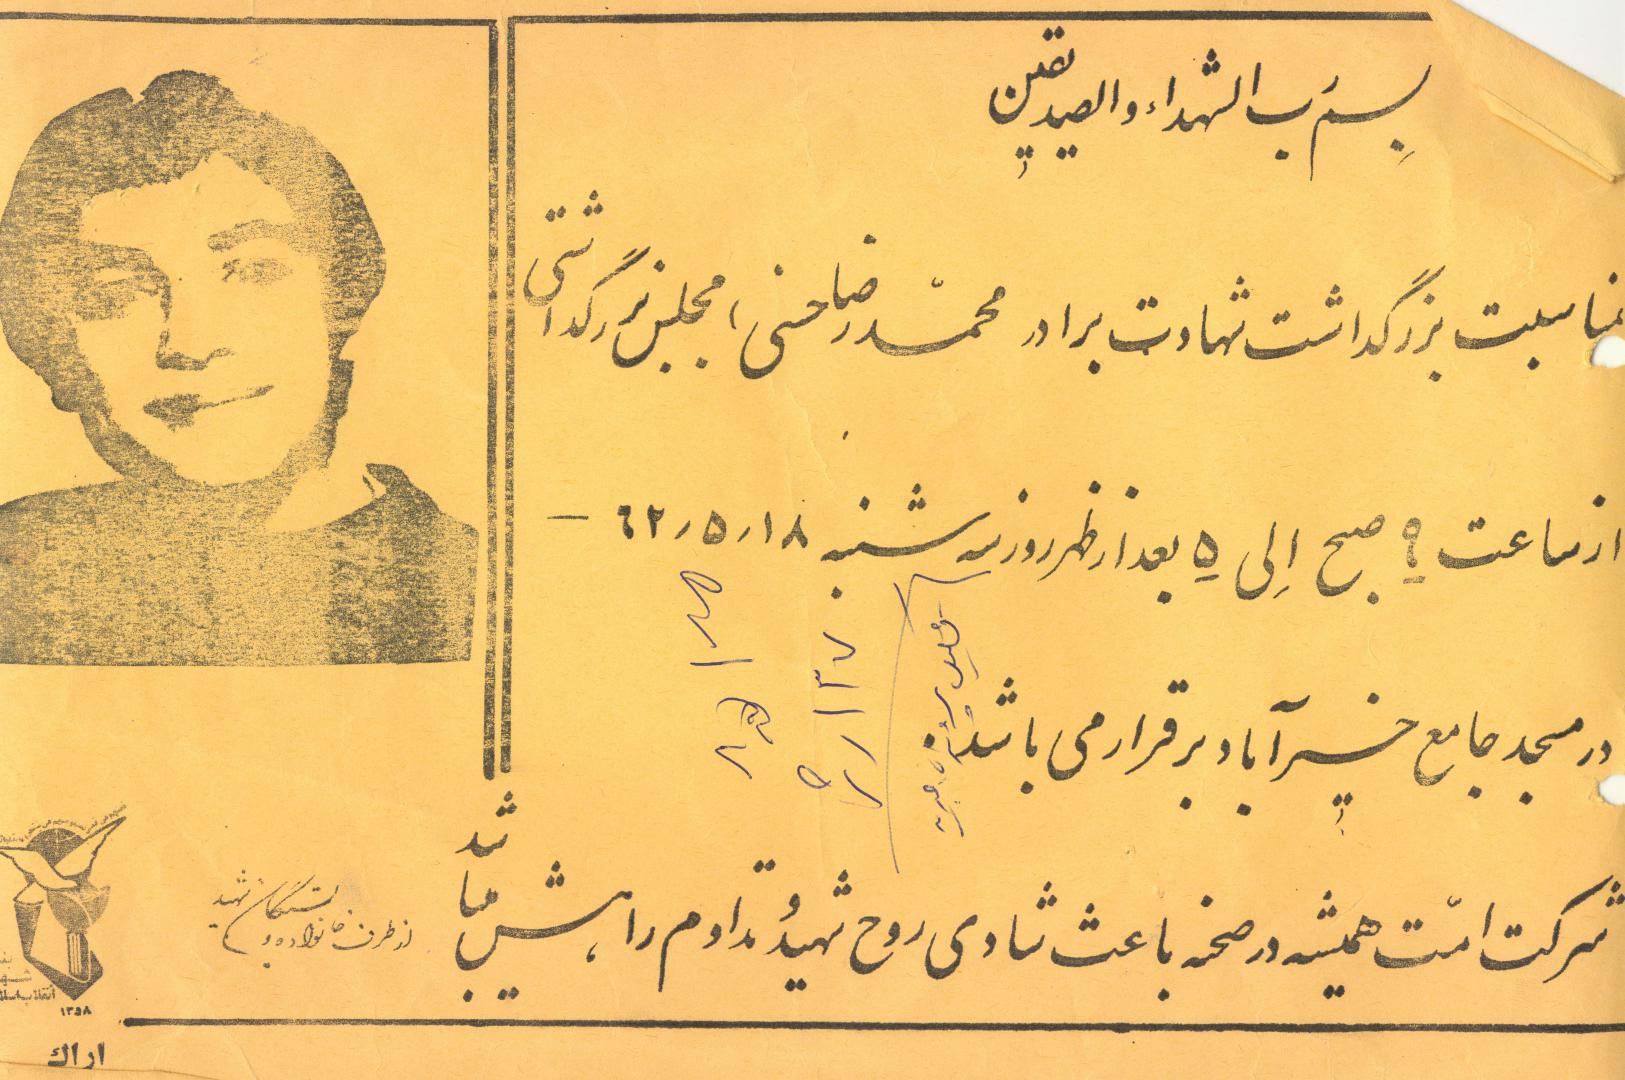 بسم رب الشهداء و الصدیقین
بمناسبت بزرگداشت شهادت برادر محمّدرضا حسنی، مجلس بزرگداشتی
از ساعت ۹ صبح اِلی ۵ بعد از ظهر روز سه شنبه ۶۲٫۵٫۱۸ –
در مسجد جامع خیرآباد برقرار می باشد.
شرکت امّت همیشه در صحنه باعث شادی روح شهید و تداوم راهش میباشد
از طرف خانواده و بستگان شهید
انقلاب اسلامی
۱۳۵۸
اراك